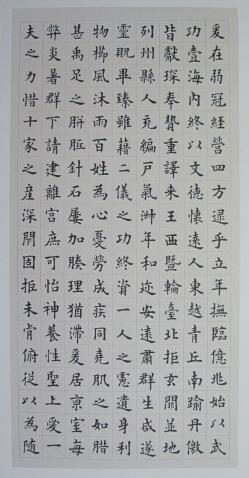 爰在弱冠經營四方逮乎立年撫臨億兆始以武
功壹海內終以文德懷遠人東越青丘南踰丹徼
皆獻琛奉贄重譯來王西暨輪臺北拒玄闕並地
列州縣人充編戶氣淑年和迩安遠肅群生咸遂
靈貺畢臻雖藉二儀之功終資一人之慮遺身利
物櫛風沐雨百姓為心憂勞成疾同堯肌之如腊
甚禹足之胼胝針石屢加腠理猶滯爰居京室每
弊炎暑群下請建離宮庶可怡神養性聖上愛一
夫之力惜十家之產深閉固拒未肯俯從以為隨